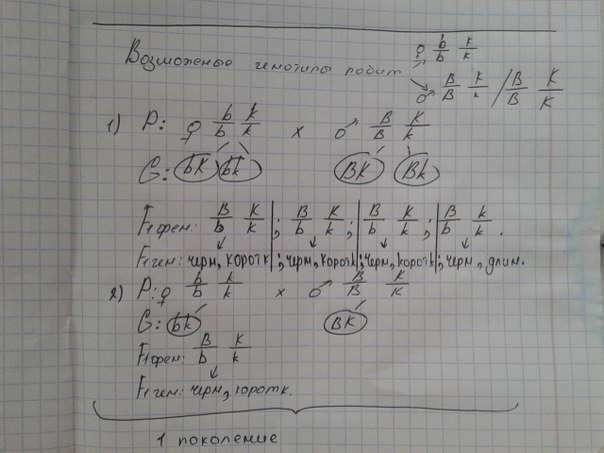 Возможные генотипы родит. ♀ b/b k/k
♂ B/B K/k / B/B K/K
1) P: ♀ b/b k/k x ♂ B/B K/k
G: bK bk BK Bk
F₁ фен: B/b K/K ; B/b K/k ; B/b K/k ; B/b k/k .
F₁ ген: черн, коротк ; черн, коротк ; черн, коротк ; черн, длин.
2) P: ♀ b/b k/k x ♂ B/B K/K
G: bk BK
F₁ фен: B/b K/k
F₁ ген: черн, коротк.
1 поколение